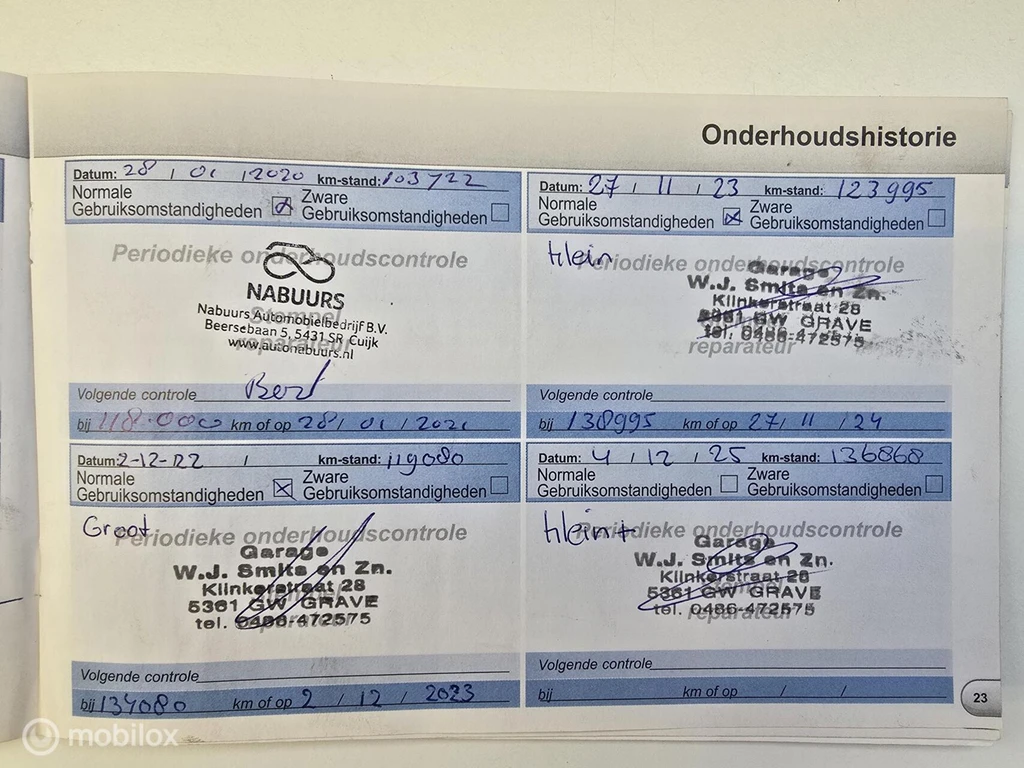 Onderhoudshistorie
Datum: 28 / 01 / 2020 km-stand: 103722
Normale Gebruiksomstandigheden
Zware Gebruiksomstandigheden
Periodieke onderhoudscontrole
NABUURS
Nabuurs Automobielbedrijf B.V.
Beersebaan 5, 5431 SR Cuijk
www.autonabuurs.nl
Stempel
reparateur
Volgende controle
bij 118.000 km of op 28 / 01 / 2021
Datum: 27 / 11 / 23 km-stand: 123995
Normale Gebruiksomstandigheden
Zware Gebruiksomstandigheden
Klein
Periodieke onderhoudscontrole
Garage
W.J. Smits en Zn.
Klinkerstraat 28
5361 GW GRAVE
tel. 0486-472575
reparateur
Volgende controle
bij 138995 km of op 27 / 11 / 24
Datum: 2-12-22 / km-stand: 119080
Normale Gebruiksomstandigheden
Zware Gebruiksomstandigheden
Groot
Periodieke onderhoudscontrole
Garage
W.J. Smits en Zn.
Klinkerstraat 28
5361 GW GRAVE
tel. 0486-472575
reparateur
Volgende controle
bij 134080 km of op 2 / 12 / 2023
Datum: 4 / 12 / 25 km-stand: 136868
Normale Gebruiksomstandigheden
Zware Gebruiksomstandigheden
Klein+
Periodieke onderhoudscontrole
Garage
W.J. Smits en Zn.
Klinkerstraat 28
Stempel
5361 GW GRAVE
tel. 0486-472575
reparateur
Volgende controle
bij km of op / /
23
mobilox